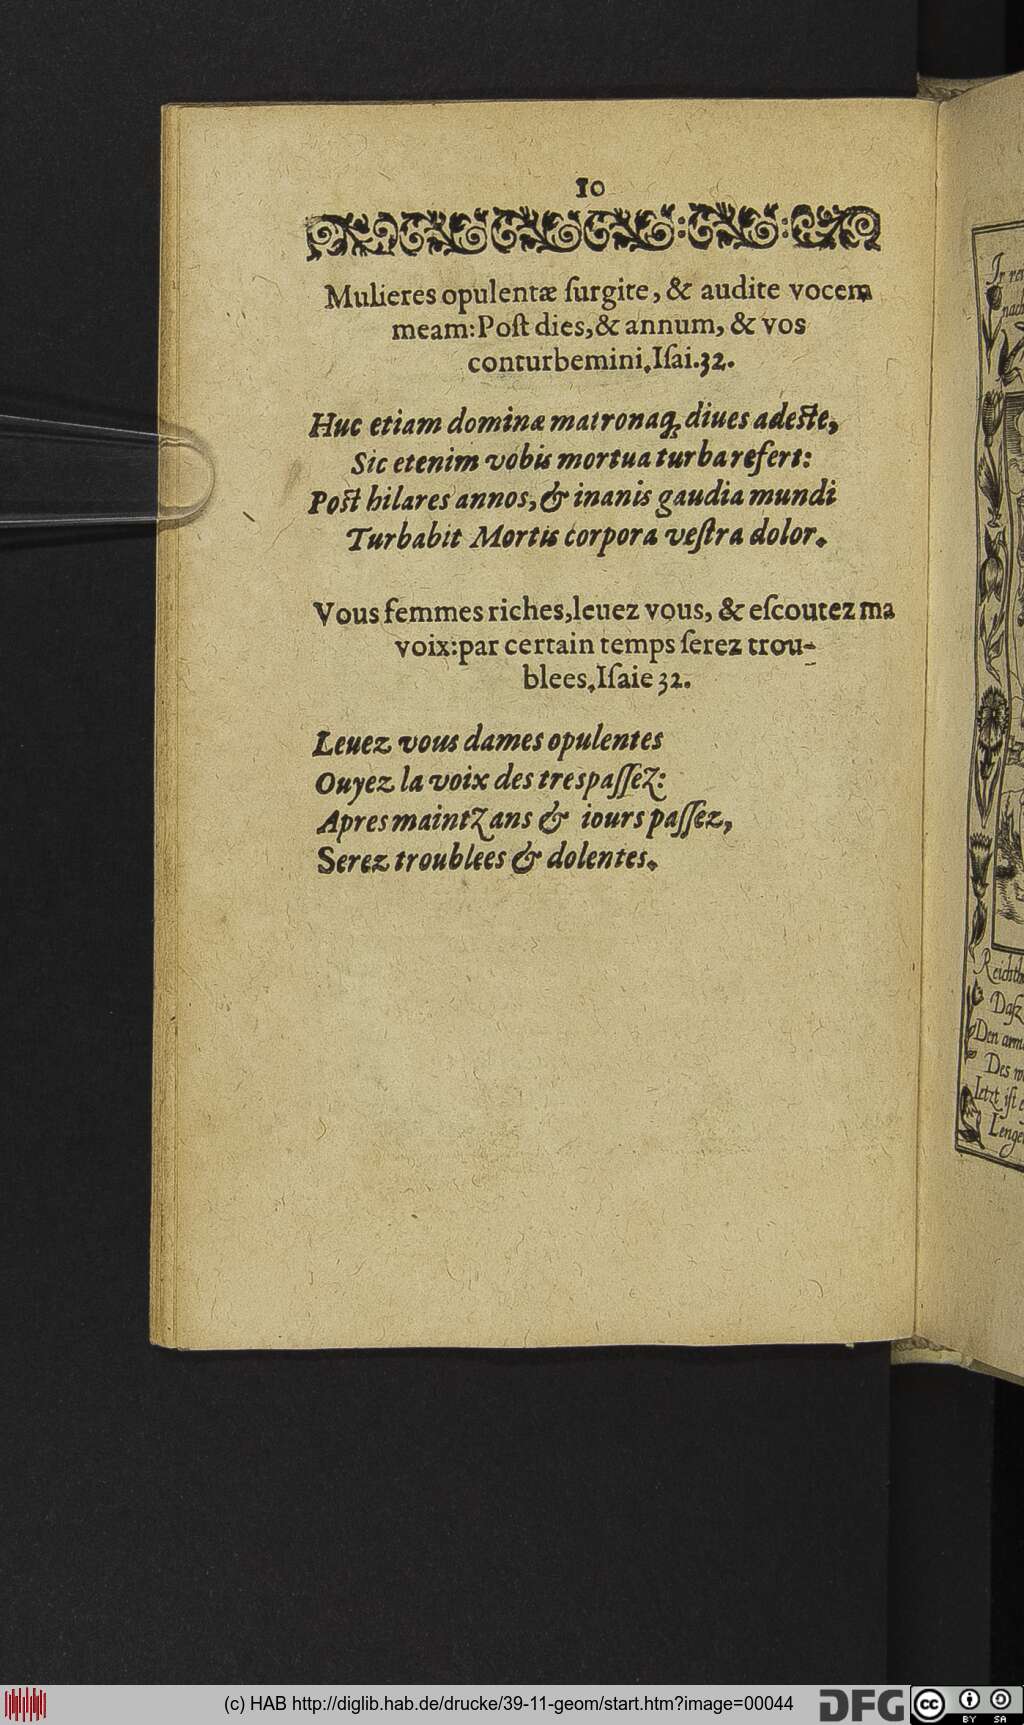 10
Mulieres opulentæ ſurgite, & audite vocem
meam: Poſt dies, & annum, & vos
conturbemini. Iſai. 32.
Huc etiam dominæ matronaq́; diues adeſte,
Sic etenim vobis mortua turba refert:
Poſt hilares annos, & inanis gaudia mundi
Turbabit Mortis corpora veſtra dolor.
Vous femmes riches, leuez vous, & eſcoutez ma
voix: par certain temps ſerez trou-
blees. Iſaie 32.
Leuez vous dames opulentes
Ouyez la voix des treſpaſſez:
Apres maintz ans & iours paſſez,
Serez troublees & dolentes.
Reichth
Daſz
Den arm
Des w
Ietzt iſt
Lenge
(c) HAB http://diglib.hab.de/drucke/39-11-geom/start.htm?image=00044
DFG
cc
BY SA